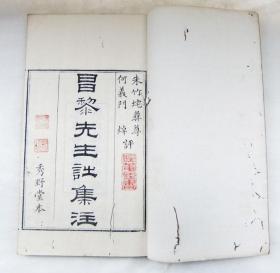 朱竹垞彝尊
何義門 焯評
昌黎先生詩集注
秀野堂本